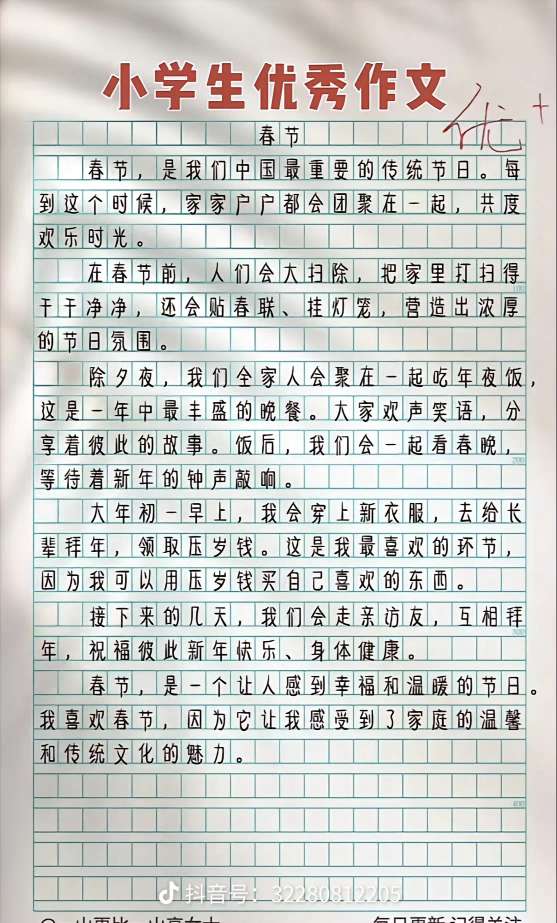 小学生优秀作文
优+
春节
春节，是我们中国最重要的传统节日。每
到这个时候，家家户户都会团聚在一起，共度
欢乐时光。
在春节前，人们会大扫除，把家里打扫得
干干净净，还会贴春联、挂灯笼，营造出浓厚
的节日氛围。
除夕夜，我们全家人会聚在一起吃年夜饭，
这是一年中最丰盛的晚餐。大家欢声笑语，分
享着彼此的故事。饭后，我们会一起看春晚，
等待着新年的钟声敲响。
大年初一早上，我会穿上新衣服，去给长
辈拜年，领取压岁钱。这是我最喜欢的环节，
因为我可以用压岁钱买自己喜欢的东西。
接下来的几天，我们会走亲访友，互相拜
年，祝福彼此新年快乐、身体健康。
春节，是一个让人感到幸福和温暖的节日。
我喜欢春节，因为它让我感受到了家庭的温馨
和传统文化的魅力。
抖音号：32280812205